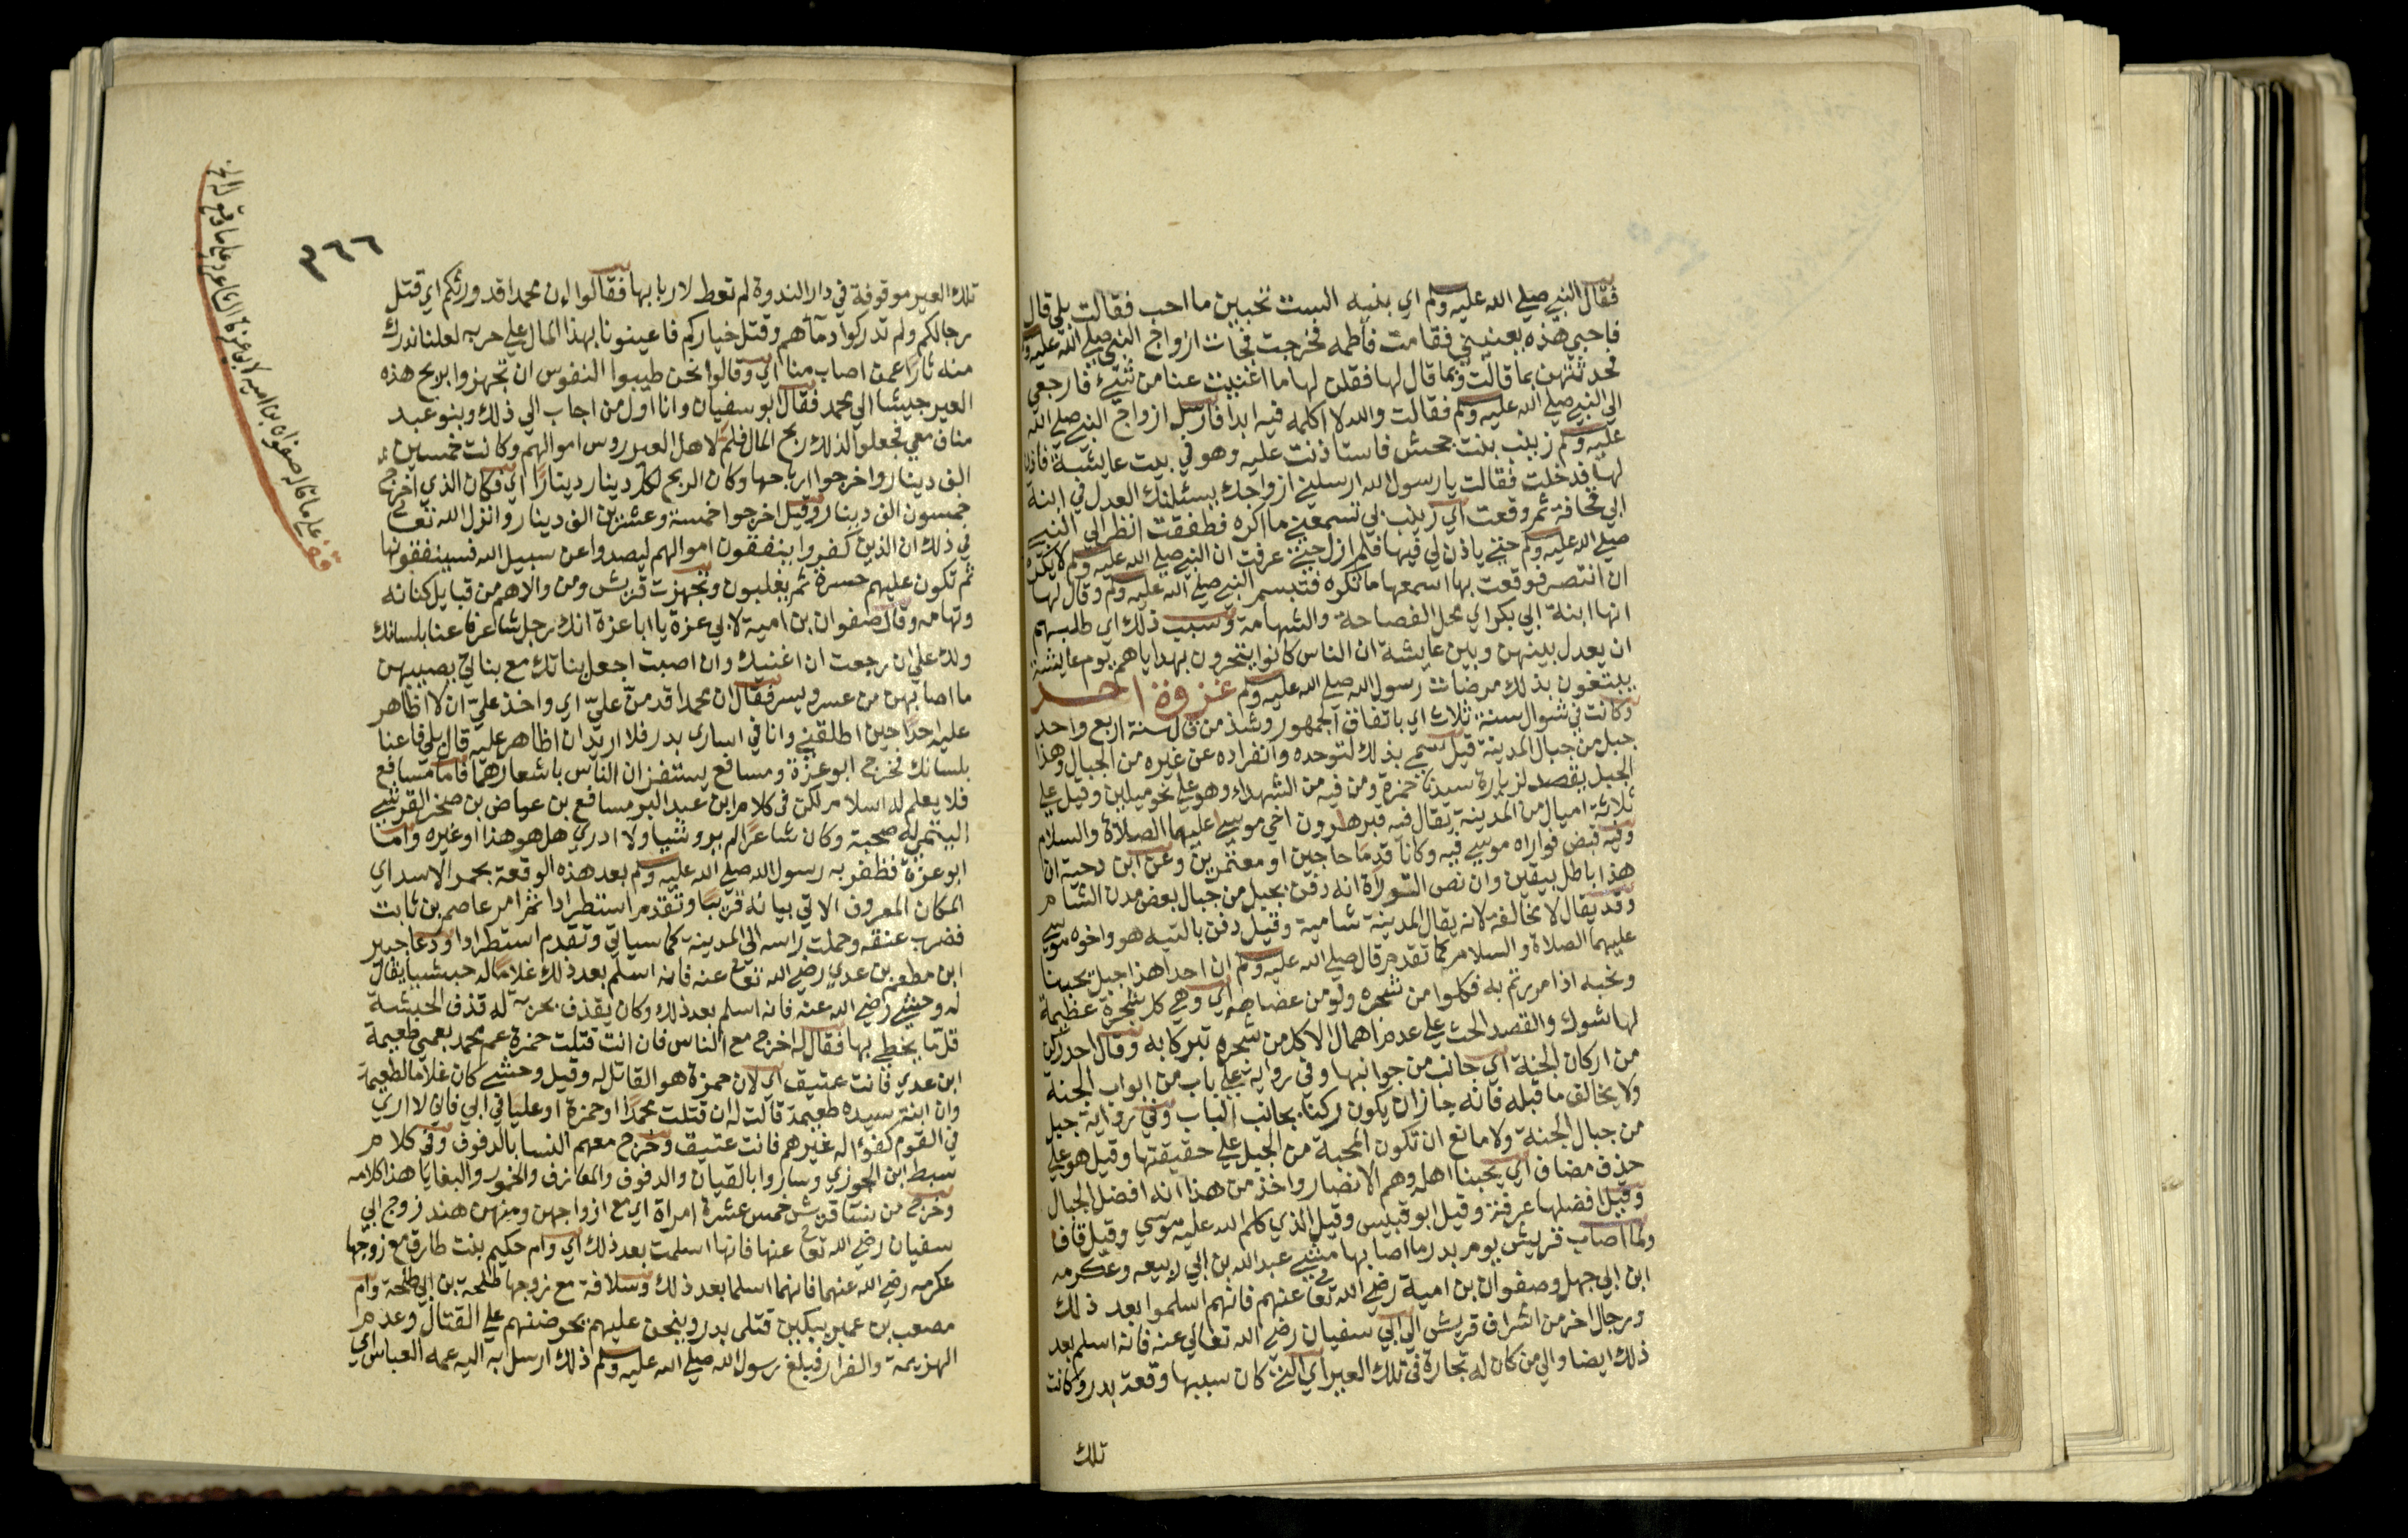 فقال النبي صلى الله عليه وسلم اي بنيه الست تحبين ما احب فقالت بلى قال
فاحبي هذه يعنيني فقامت فاطمه فخرجت فجات ازواج النبي صلى الله عليه وسلم
فحدثتهن بما قالت وبما قال لها فقلن لها ما اغنيت عنا من شيء فارجعي
الى النبي صلى الله عليه وسلم فقالت والله لا اكلمه فيها ابدا فارسل ازواج النبي صلى الله
عليه وسلم زينب بنت جحش فاستاذنت عليه وهو في بيت عايشة فاذن
لها فدخلت فقالت يا رسول الله ارسلني ازواجك يسئلنك العدل في ابنة
ابي قحافة ثم وقعت اي زينب بي تسمعني ما اكره فطفقت انظر الى النبي
صلى الله عليه وسلم حتى ياذن لي فيها فلم ازل حتى عرفت ان النبي صلى الله عليه وسلم لا يكره
ان انتصر فوقعت بها اسمعها ما تكره فتبسم النبي صلى الله عليه وسلم وقال لها
انها ابنة ابي بكر اي محل الفصاحة والشهامة وسبب ذلك اي طلبهم
ان يعدل بينهن وبين عايشة ان الناس كانوا يتحرون بهداياهم يوم عايشة
يبتغون بذلك مرضات رسول الله صلى الله عليه وسلم غزوة احد
وكانت في شوال سنة ثلاث اي باتفاق الجمهور وشذ من قال سنة اربع واحد
جبل من جبال المدينة قيل سمي بذلك لتوحده وانفراده عن غيره من الجبال وهذا
الجبل يقصد لزيارة سيدنا حمزة ومن فيه من الشهداء وهو على نحو ميلين وقيل على
ثلاثة اميال من المدينة يقال فيه قبر هارون اخي موسى عليهما الصلاة والسلام
وفيه قبض فواراه موسى فيه وكانا قدما حاجين او معتمرين وعن ابن دحية ان
هذا باطل بيقين وان نص التوراة انه دفن بجبل من جبال بعض مدن الشام
وقد يقال لا مخالفة لانه يقال المدينة شامية وقيل دفن بالتيه هو واخوه موسى
عليهما الصلاة والسلام كما تقدم قال صلى الله عليه وسلم ان احدا هذا جبل يحبنا
ونحبه اذا مررتم به فكلوا من شجره ولو من عضاهه اي وهي كل شجرة عظيمة
لها شوك والقصد الحث على عدم اهمال الاكل من شجره تبركا به وقال احد ركن
من اركان الجنة اي جانب من جوانبها وفي رواية على باب من ابواب الجنة
ولا يخالف ما قبله فانه جاز ان يكون ركنا بجانب الباب وفي رواية جبل
من جبال الجنة ولا مانع ان تكون المحبة من الجبل على حقيقتها وقيل هو على
حذف مضاف اي يحبنا اهله وهم الانصار واخذ من هذا انه افضل الجبال
وقيل افضلها عرفة وقيل ابو قبيس وقيل الذي كلم الله عليه موسى وقيل قاف
ولما اصاب قريش يوم بدر ما اصابها مشى عبد الله بن ابي ربيعه وعكرمه
ابن ابي جهل وصفوان بن امية رضي الله تعالى عنهم فانهم اسلموا بعد ذلك
ورجال اخر من اشراف قريش الى ابي سفيان رضي الله تعالى عنه فانه اسلم بعد
ذلك ايضا والى من كان له تجارة في تلك العير اي التي كان سببها وقعة بدر وكانت
تلك
٣٦٦
تلك العير موقوفة في دار الندوة لم تعط لاربابها فقالوا ان محمدا قد وتركم اي قتل
رجالكم ولم تدركوا دمآهم وقتل خياركم فاعينونا بهذا المال على حربه لعلنا ندرك
منه ثارا عمن اصاب منا اي وقالوا نحن طيبوا النفوس ان تجهزوا بربح هذه
العير جيشا الى محمد فقال ابو سفيان وانا اول من اجاب الى ذلك وبنو عبد
مناف معي فجعلوا لذلك ربح المال فلم لاهل العير روس اموالهم وكانت خمسين
الف دينار واخرجوا ارباحها وكان الربح لكل دينار دينارا اي فكان الذي اخرج
خمسون الف دينار وقيل اخرجوا خمسة وعشرين الف دينار وانزل الله تعالى
في ذلك ان الذين كفروا ينفقون اموالهم ليصدوا عن سبيل الله فسينفقونها
ثم تكون عليهم حسرة ثم يغلبون وتجهزت قريش ومن والاهم من قبايل كنانه
وتهامه وقال صفوان بن امية لابي عزة يا ابا عزة انك رجل شاعر فاعنا بلسانك
ولك علي ان رجعت ان اغنيك وان اصبت اجعل بناتك مع بناتي يصيبهن
ما اصابهن من عسر ويسر فقال ان محمدا قد من علي اي واخذ علي ان لا اظاهر
عليه احدا حين اطلقني وانا في اسارى بدر فلا اريد ان اظاهر عليه قال بلى فاعنا
بلسانك فخرج ابو عزة ومسافع يستنفزان الناس باشعارهما فاما مسافع
فلا يعلم له اسلام لكن في كلام ابن عبد البر مسافع بن عياض بن صخر القرشي
التيمي له صحبة وكان شاعرا لم يرو شيا ولا ادري هل هو هذا او غيره واما
ابو عزة فظفر به رسول الله صلى الله عليه وسلم بعد هذه الوقعة بحمر الاسد اي
المكان المعروف الاتي بيانه قريبا وتقدم استطرادا ثم امر عاصم بن ثابت
فضرب عنقه وحملت راسه الى المدينة كما سياتي وتقدم استطرادا ودعا جبير
ابن مطعم بن عدي رضي الله تعالى عنه فانه اسلم بعد ذلك غلاما له حبشيا يقال
له وحشي رضي الله عنه فانه اسلم بعد ذلك وكان يقذف بحربة له قذف الحبشة
قل ما يخطي بها فقال له اخرج مع الناس فان انت قتلت حمزة عم محمد بعمي طعيمة
ابن عدي فانت عتيق اي لان حمزة هو القاتل له وقيل وحشي كان غلاما لطعيمة
وان ابنة سيده طعيمة قالت له ان قتلت محمدا او حمزة او عليا في ابي فاني لا ارى
في القوم كفؤا له غيرهم فانت عتيق وخرج معهم النسا بالدفوف وفي كلام
سبط ابن الجوزي وساروا بالقيان والدفوف والمعازف والخمور والبغايا هذا كلامه
وخرج من نسا قريش خمس عشرة امراة اي مع ازواجهن ومنهن هند زوج ابي
سفيان رضي الله تعالى عنها فانها اسلمت بعد ذلك اي وام حكيم بنت طارق مع زوجها
عكرمه رضي الله عنهما فانهما اسلما بعد ذلك وسلافة مع زوجها طلحة بن ابي طلحة وام
مصعب بن عمير يبكين قتلى بدر وينحن عليهم يحرضنهم على القتال وعدم
الهزيمة والفرار فبلغ رسول الله صلى الله عليه وسلم ذلك ارسل به اليه عمه العباس اي
قف على ما قاله صفوان بن اميه لابي عزة الشاعر وعلى ما وقع له الخ